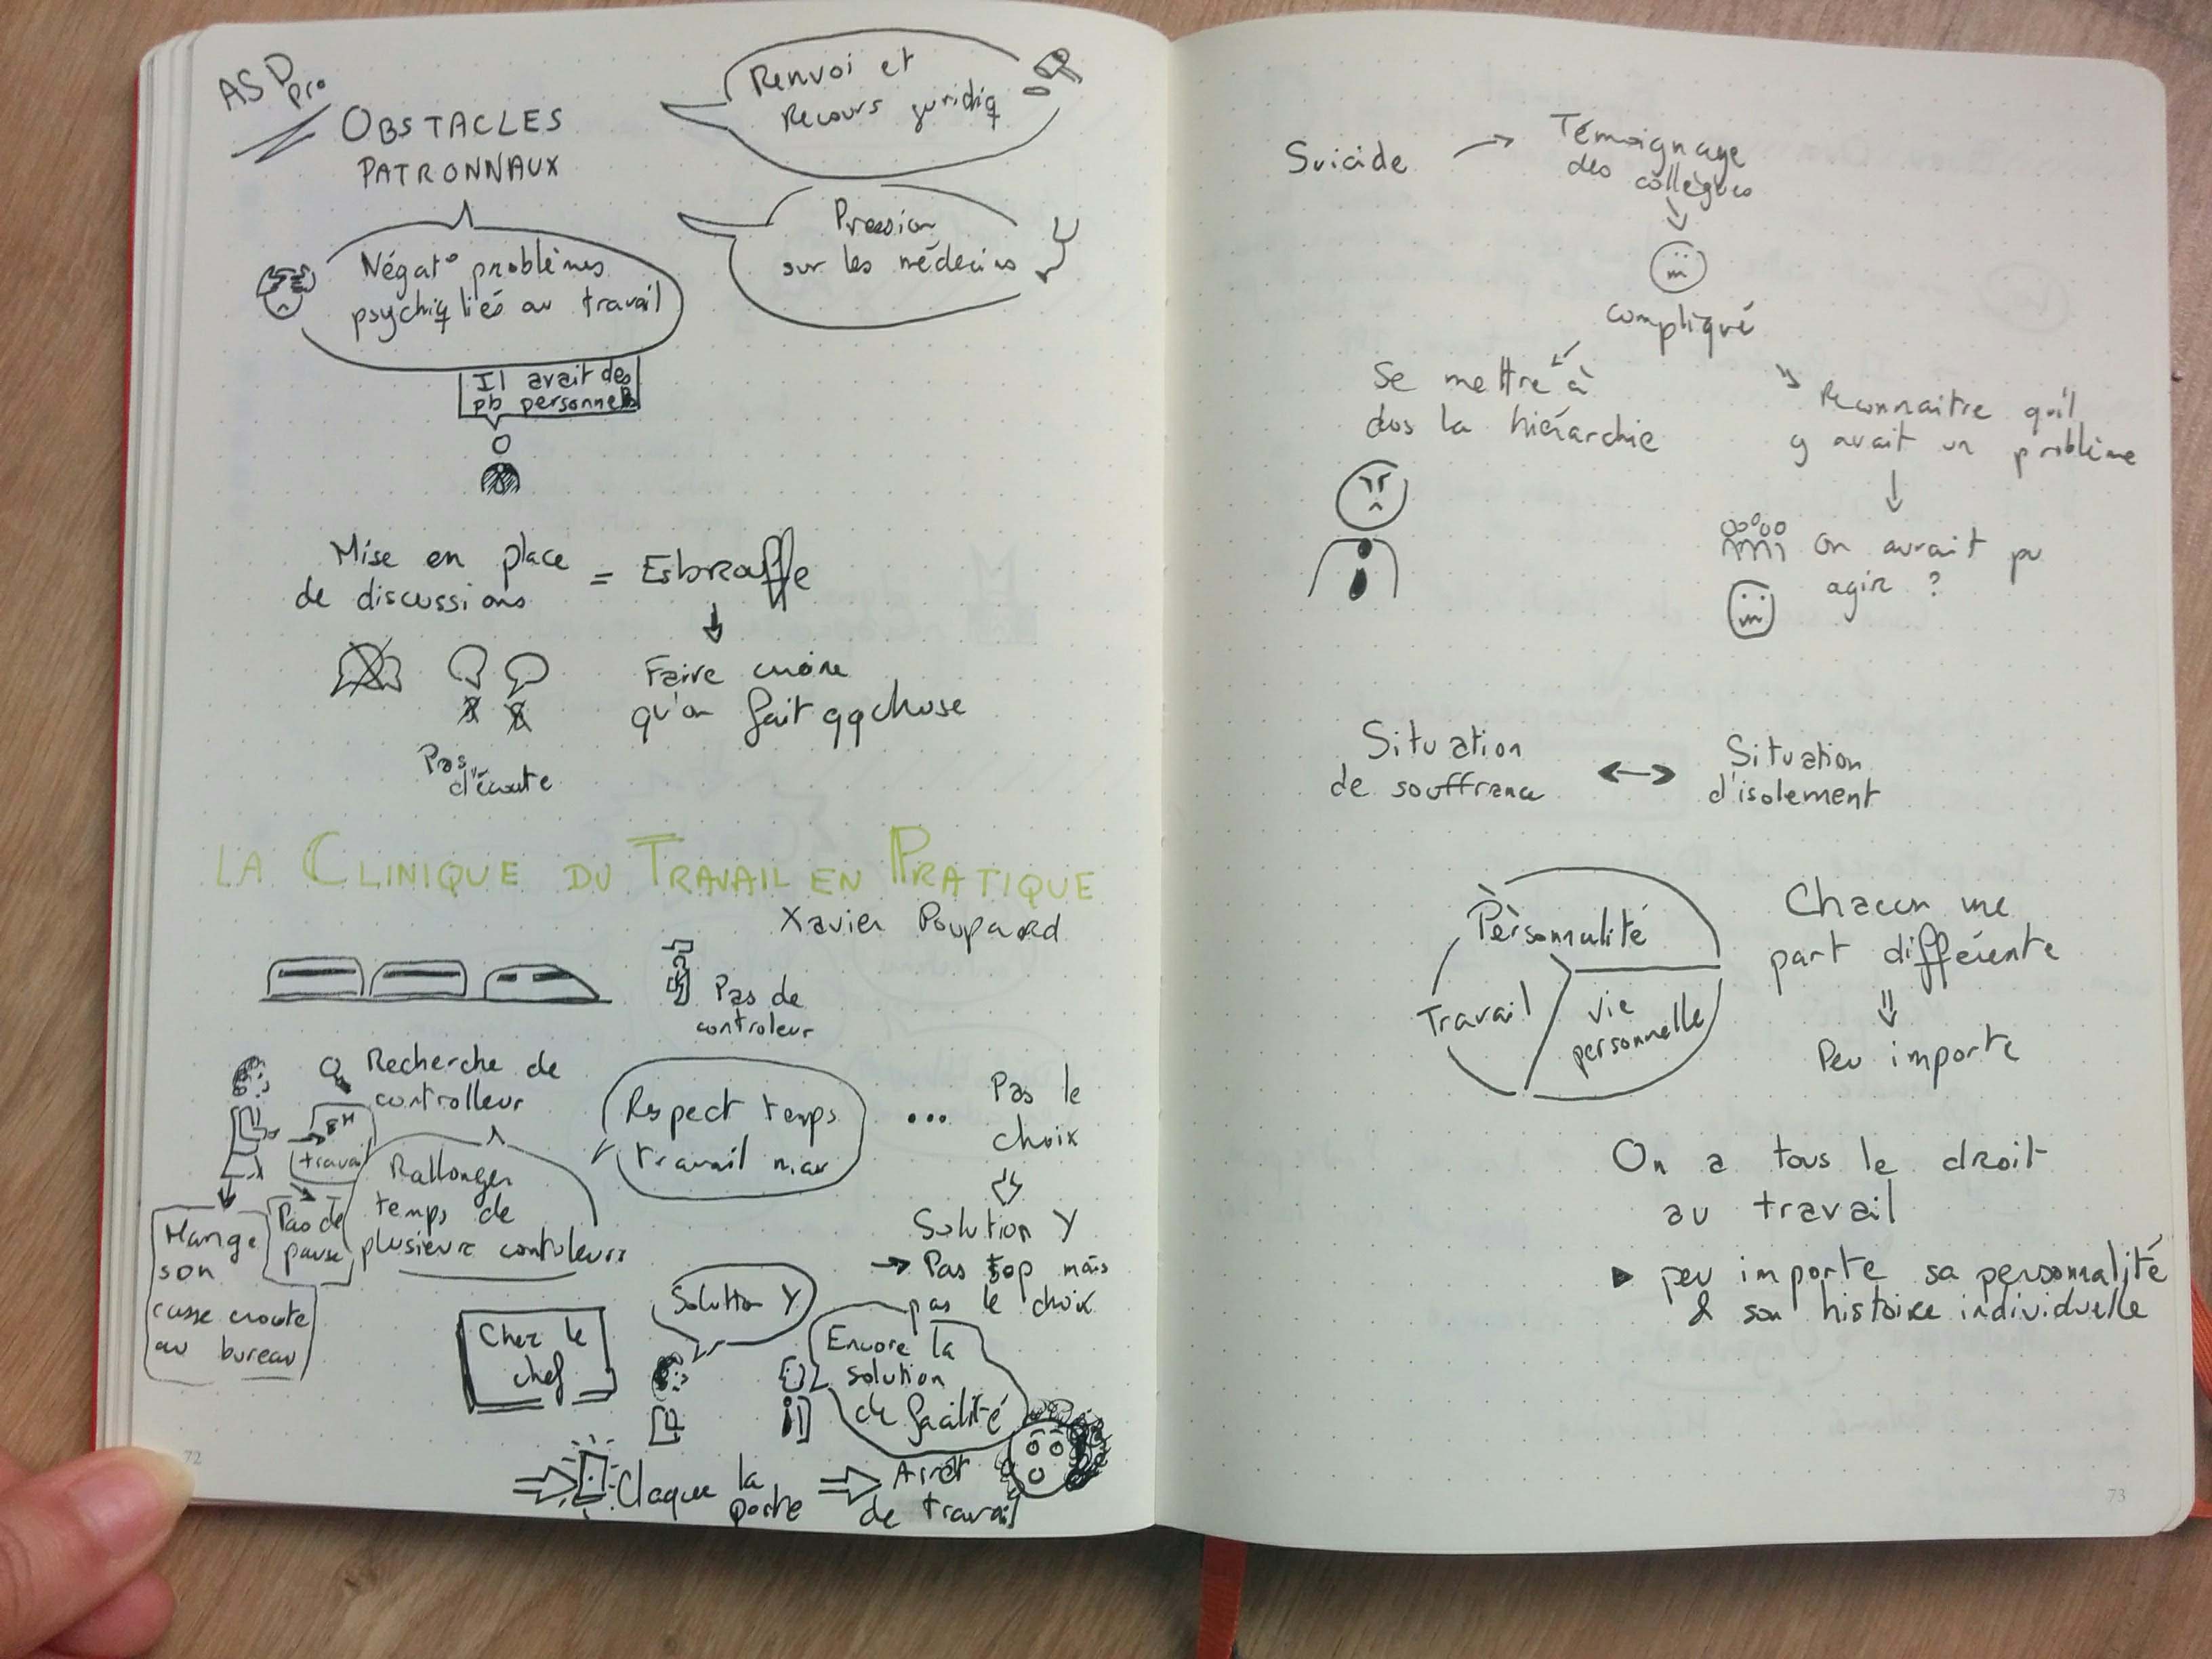 ASDpro
OBSTACLES
PATRONNAUX
Renvoi et
Recours juridiq
Pression
sur les médecins
Négat° problèmes
psychiq liés au travail
Il avait des
pb personnels
Mise en place
de discussions
= Esbrouffe
Faire croire
qu'on fait qqchose
Pas
d'écoute
LA CLINIQUE DU TRAVAIL EN PRATIQUE
Xavier Poupard
Pas de
controleur
Recherche de
controlleur
8H
travail
Pas de
pause
Mange
son
casse croute
au bureau
Rallonger
temps de
plusieurs controleurs
Respect temps
travail max
...
Pas le
choix
Solution Y
→ Pas top mais
pas le choix
Chez le
chef
Solution Y
Encore la
solution
de facilité
Claque la
porte
Arrêt
de travail
72
Suicide → Témoignage
des collègues
compliqué
Se mettre à
dos la hiérarchie
Reconnaitre qu'il
y avait un problème
On aurait pu
agir ?
Situation
de souffrance
↔
Situation
d'isolement
Personnalité
Travail
Vie
personnelle
Chacun une
part différente
Peu importe
On a tous le droit
au travail
▸ peu importe sa personnalité
& son histoire individuelle
73